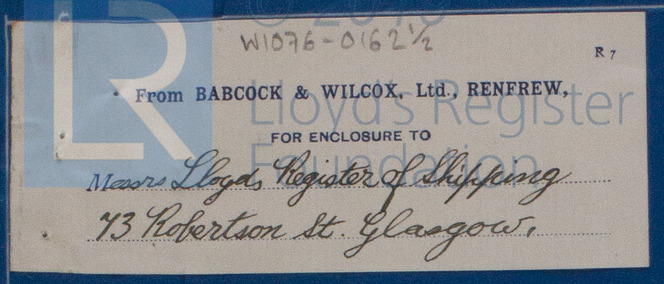 © 2018
W1076-0162½
R 7
From BABCOCK & WILCOX, Ltd., RENFREW,
Lloyd's Register
Foundation
FOR ENCLOSURE TO
Messrs Lloyds Register of Shipping
73 Robertson St. Glasgow.